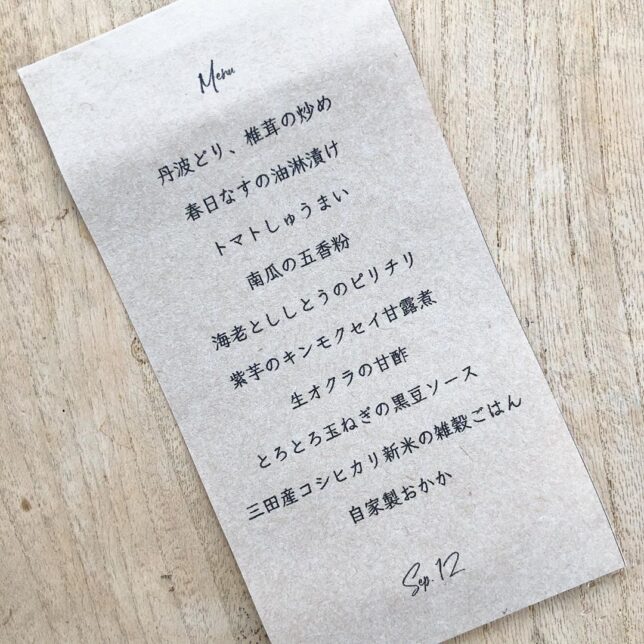 Menu
丹波どり、椎茸の炒め
春日なすの油淋漬け
トマトしゅうまい
南瓜の五香粉
海老とししとうのピリチリ
紫芋のキンモクセイ甘露煮
生オクラの甘酢
とろとろ玉ねぎの黒豆ソース
三田産コシヒカリ新米の雑穀ごはん
自家製おかか
Sep. 12